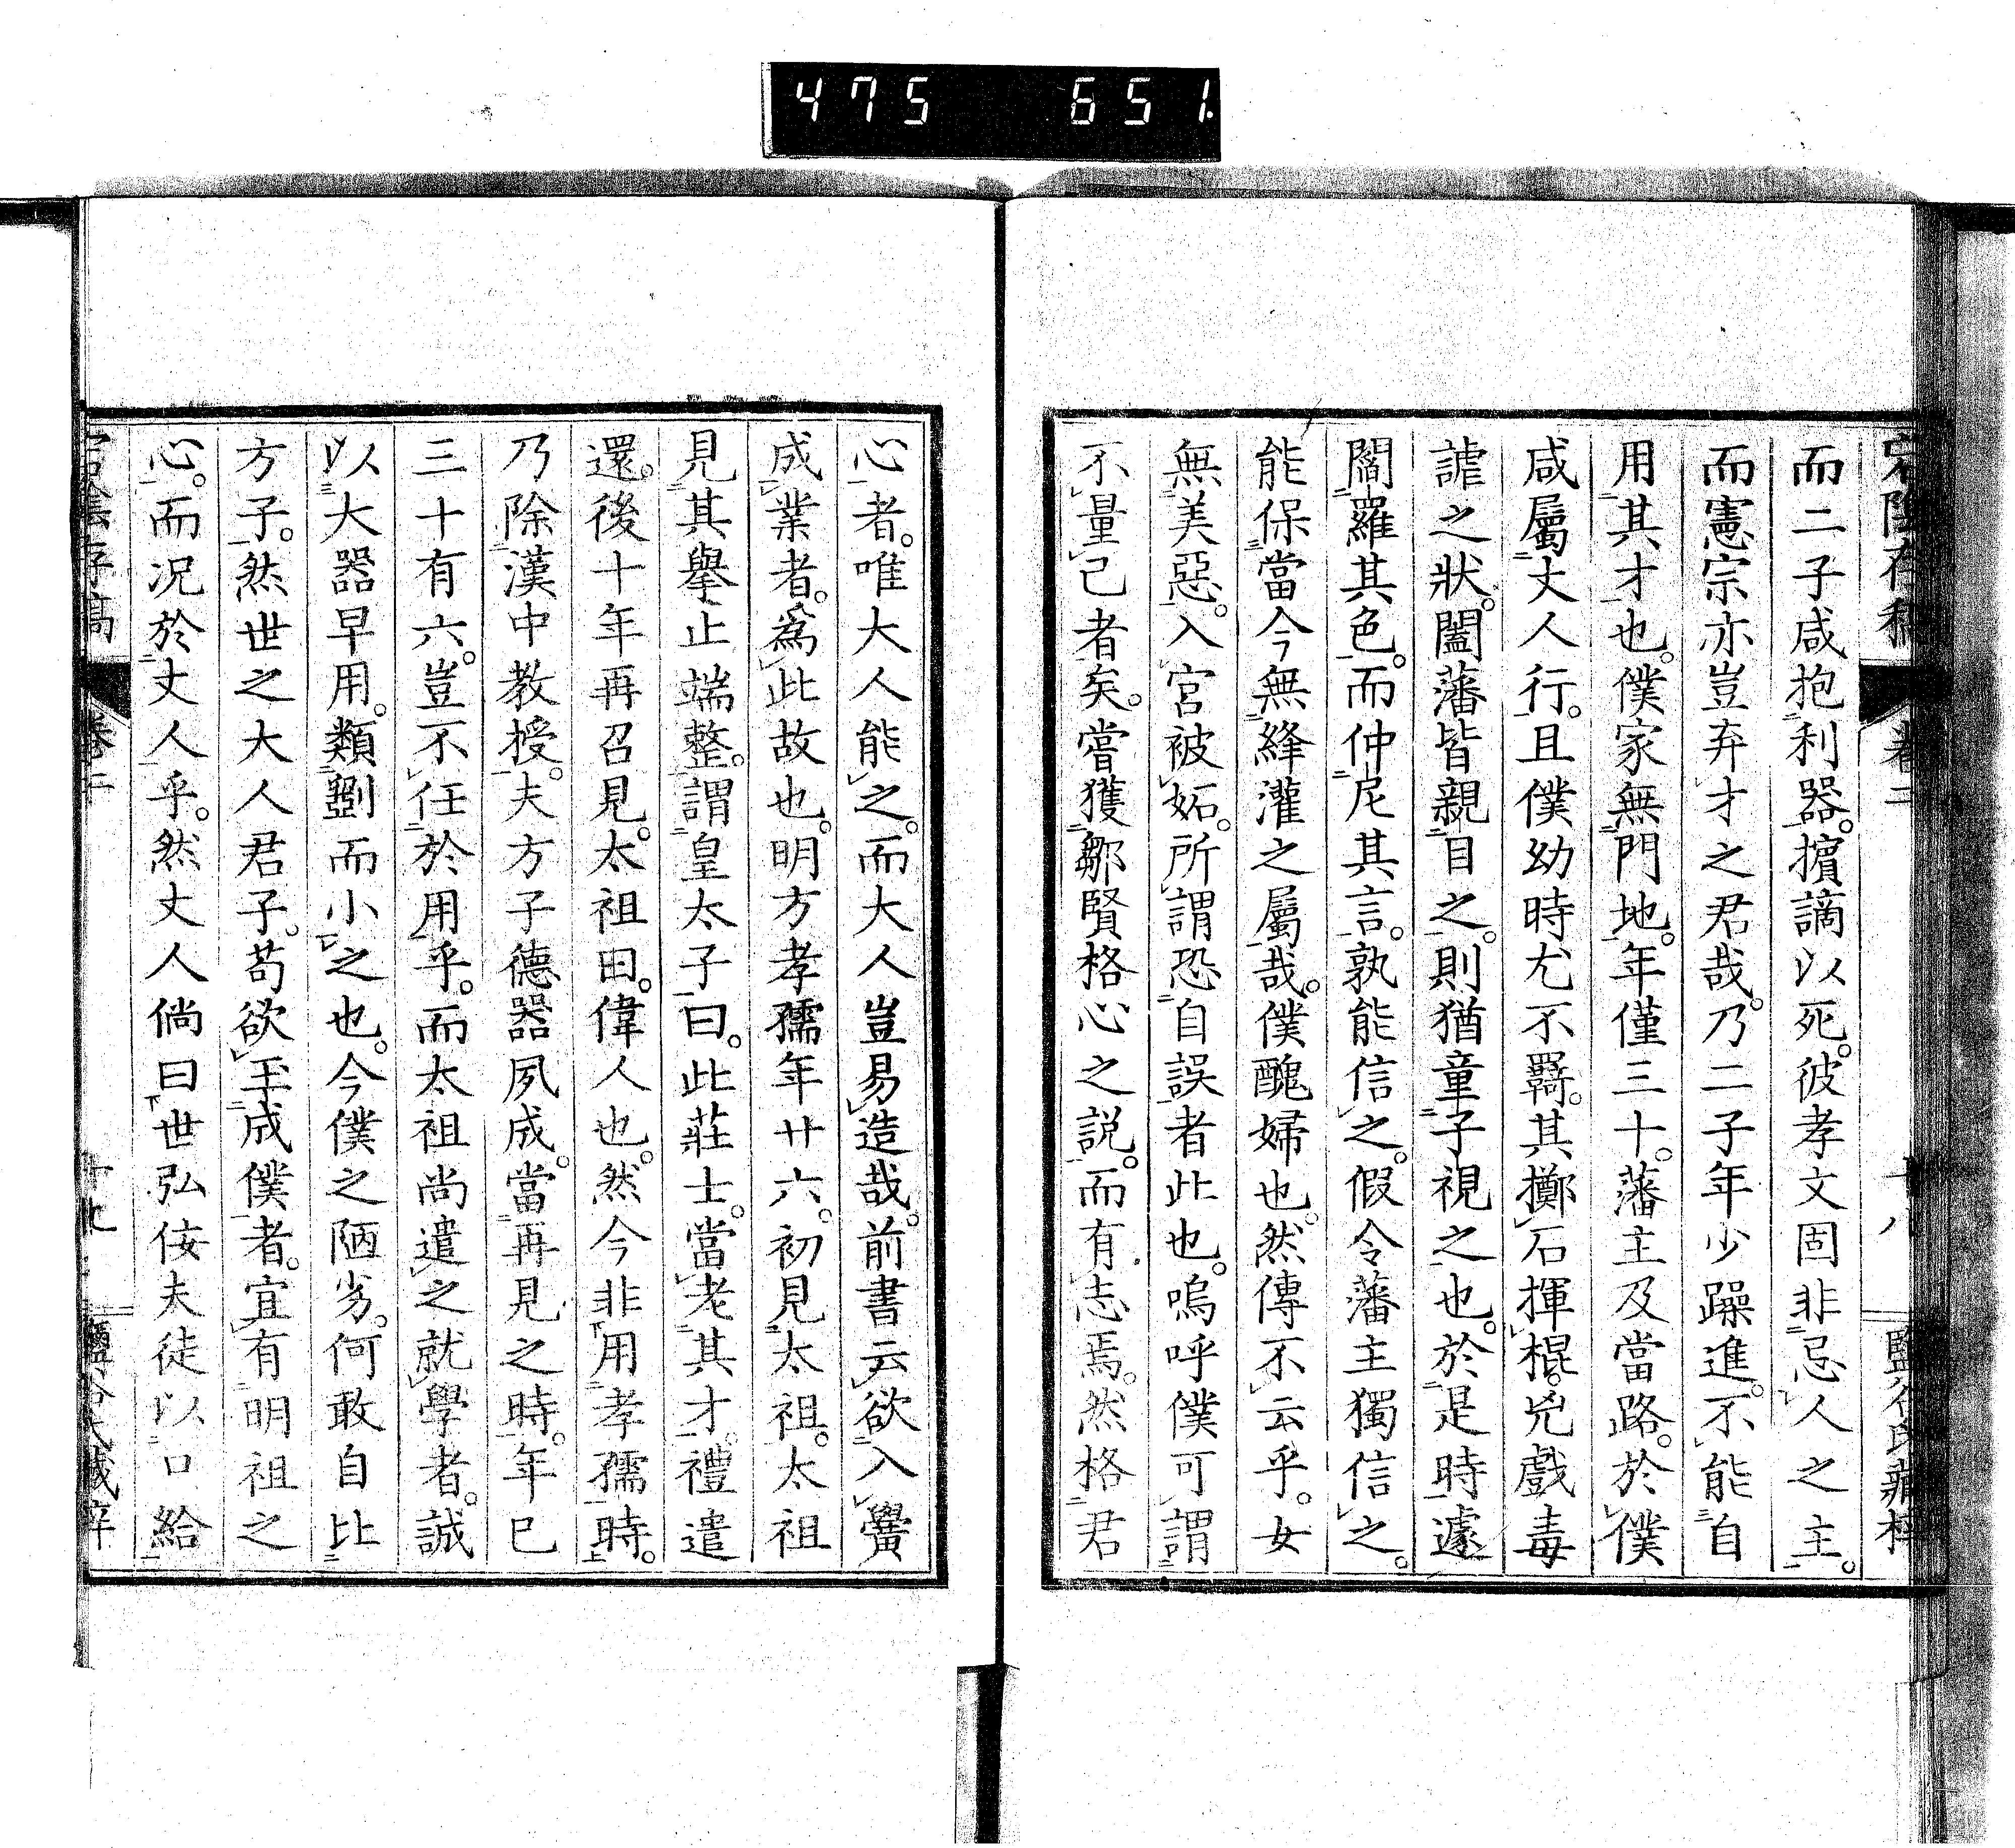 475 651.
宕陰存稿 卷二 十八 鹽谷氏藏梓
而二子咸抱利器。擯謫以死。彼孝文固非忌人之主。
而憲宗亦豈弃才之君哉。乃二子年少躁進。不能自
用其才也。僕家無門地。年僅三十。藩主及當路。於僕
咸屬丈人行。且僕幼時尤不羇。其擲石揮棍。兇戲毒
謔之狀。闔藩皆親目之。則猶童子視之也。於是時遽
閻羅其色。而仲尼其言。孰能信之。假令藩主獨信之。
能保當今無絳灌之屬哉。僕醜婦也。然傳不云乎。女
無美惡。入宮被妬。所謂恐自誤者此也。嗚呼僕可謂
不量己者矣。嘗獲鄒賢格心之説。而有志焉。然格君
心者。唯大人能之。而大人豈易造哉。前書云欲入黌
成業者。爲此故也。明方孝孺年廿六。初見太祖。太祖
見其擧止端整。謂皇太子曰。此莊士。當老其才。禮遣
還。後十年再召見。太祖曰。偉人也。然今非用孝孺時。
乃除漢中教授。夫方子德器夙成。當再見之時。年已
三十有六。豈不任於用乎。而太祖尚遣之就學者。誠
以大器早用。類劉而小之也。今僕之陋劣。何敢自比
方子。然世之大人君子。苟欲玉成僕者。宜有明祖之
心。而況於丈人乎。然丈人倘曰世弘佞夫徒以口給
宕陰存稿 卷二 十九 鹽谷氏藏梓